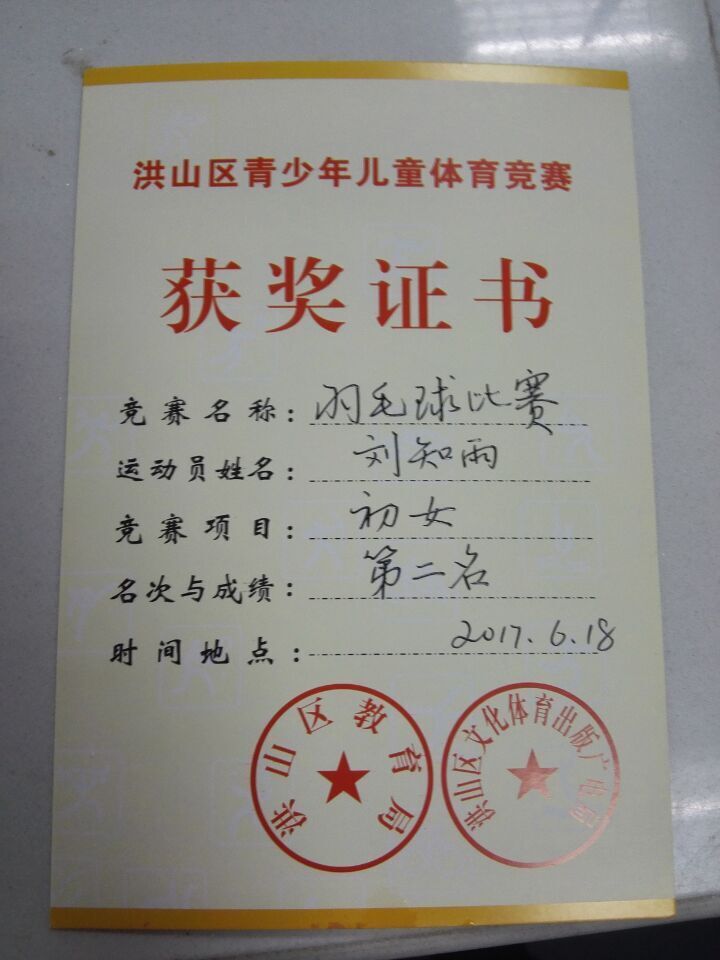 洪山区青少年儿童体育竞赛
获奖证书
竞赛名称：羽毛球比赛
运动员姓名：刘知雨
竞赛项目：初女
名次与成绩：第二名
时间地点：2017.6.18
洪山区教育局
洪山区文化体育出版广电局